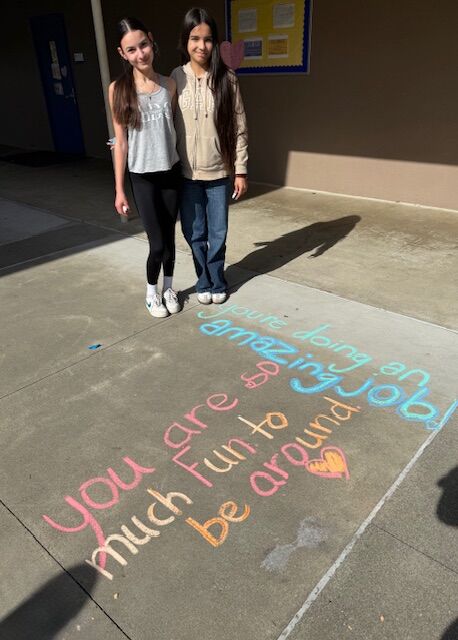 you're doing an
amazing job!
you are so
much Fun to
be around